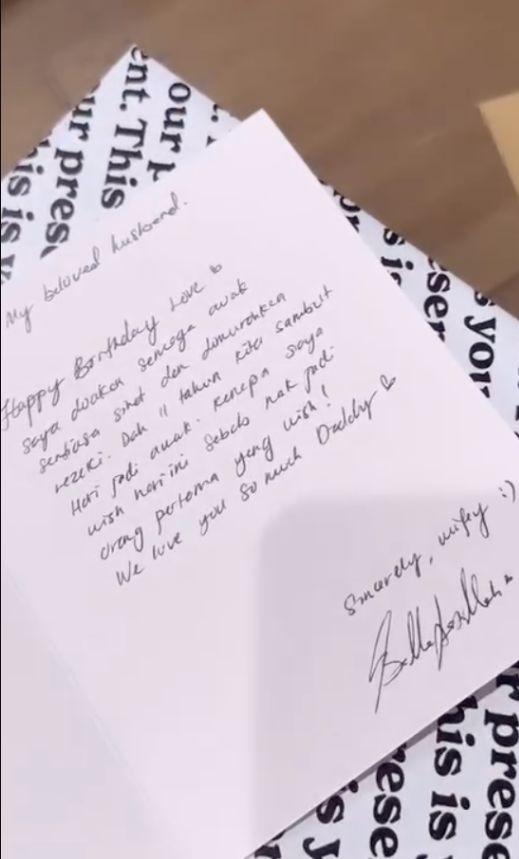 My beloved husband.
Happy Birthday Love
saya doakan semoga awak
sentiasa sihat dan dimurahkan
rezeki. Dah 11 tahun kita sambut
Hari jadi awak. Kenapa saya
wish hari ini sebab nak jadi
orang pertama yang wish!
We love you so much Daddy
Sincerely, wifey :)
our p
ent. This
ur prese
is is y
s your
ser
s is
r prese
his is
rese
is y